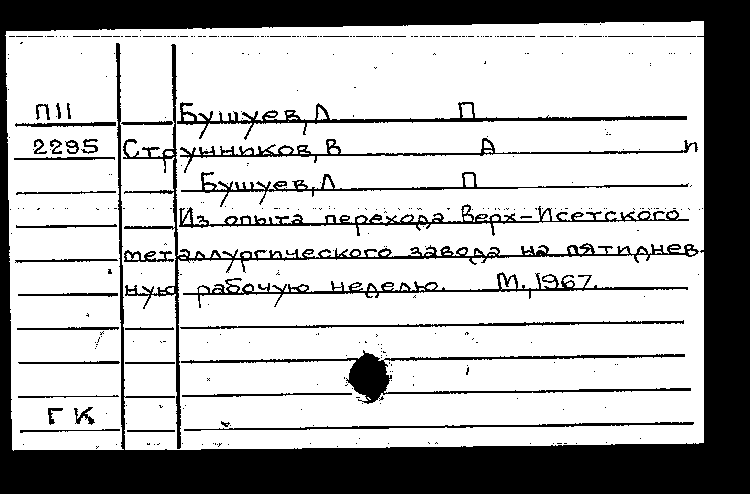 П11 Бушуев, Л П
2295 Струнников, В А п
Бушуев, Л П
Из опыта перехода Верх-Исетского
металлургического завода на пятиднев-
ную рабочую неделю. М., 1967.
ГК